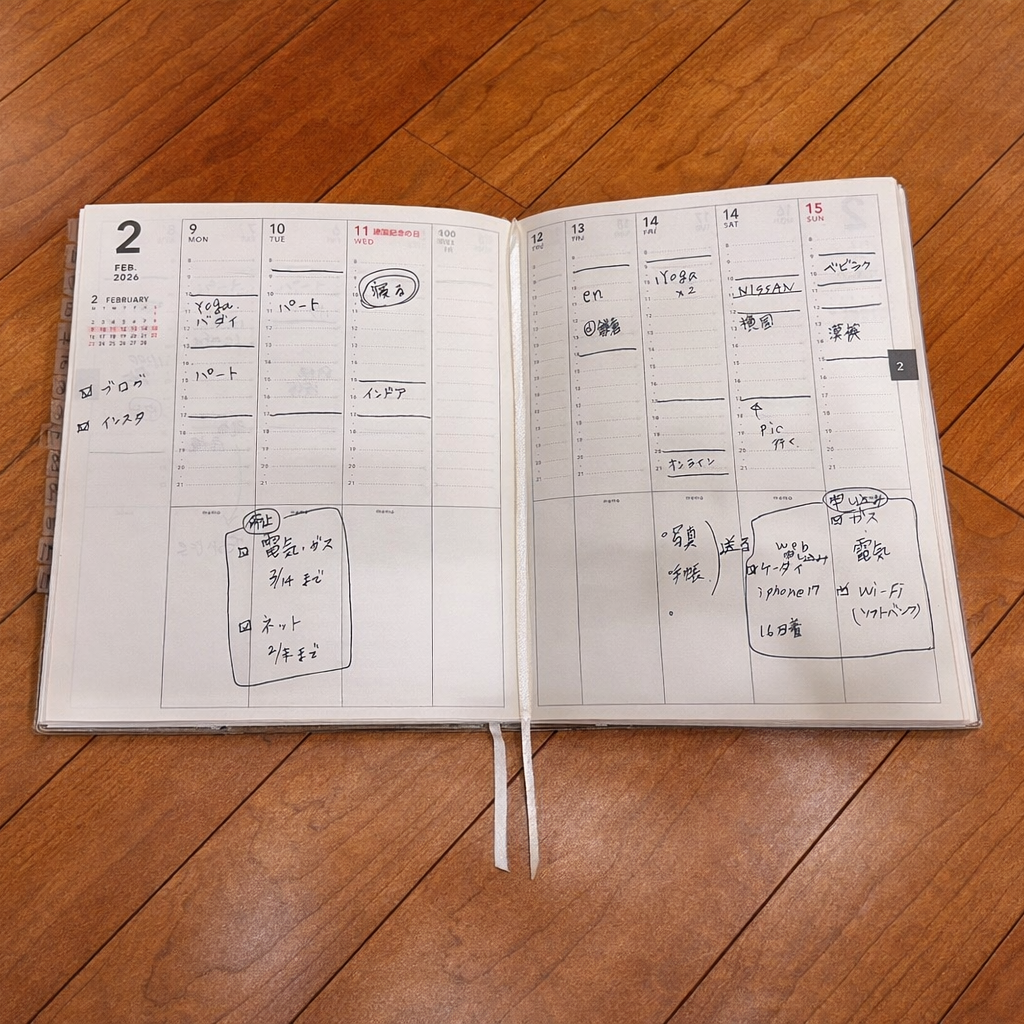 2
FEB.
2026
2 FEBRUARY
ブログ
インスタ
9
MON
Yoga
バダイ
パート
10
TUE
パート
11
WED
寝る
インドア
memo
memo
memo
停止
電気・ガス
3/14まで
ネット
2/末まで
12
13
en
@鎌倉
14
iYoga
x2
オンライン
14
SAT
NISSAN
横国
pic
行く
15
SUN
ベビラク
漢検
2
memo
memo
memo
・写真
・手帳
・
送る
申し込み
ガス
電気
Wi-Fi
(ソフトバンク)
web
申し込み
ケータイ
iphone17
16日着